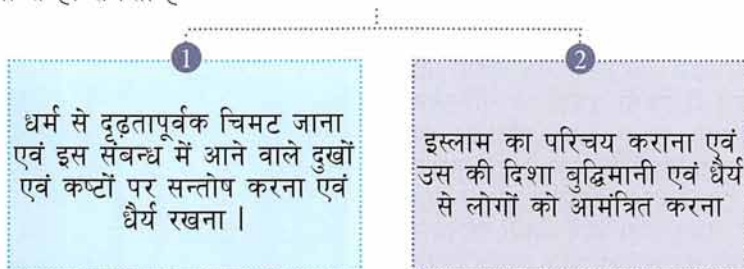 1
धर्म से दृढ़तापूर्वक चिमट जाना
एवं इस संबन्ध में आने वाले दुखों
एवं कष्टों पर सन्तोष करना एवं
धैर्य रखना |
2
इस्लाम का परिचय कराना एवं
उस की दिशा बुद्धिमानी एवं धैर्य
से लोगों को आमंत्रित करना